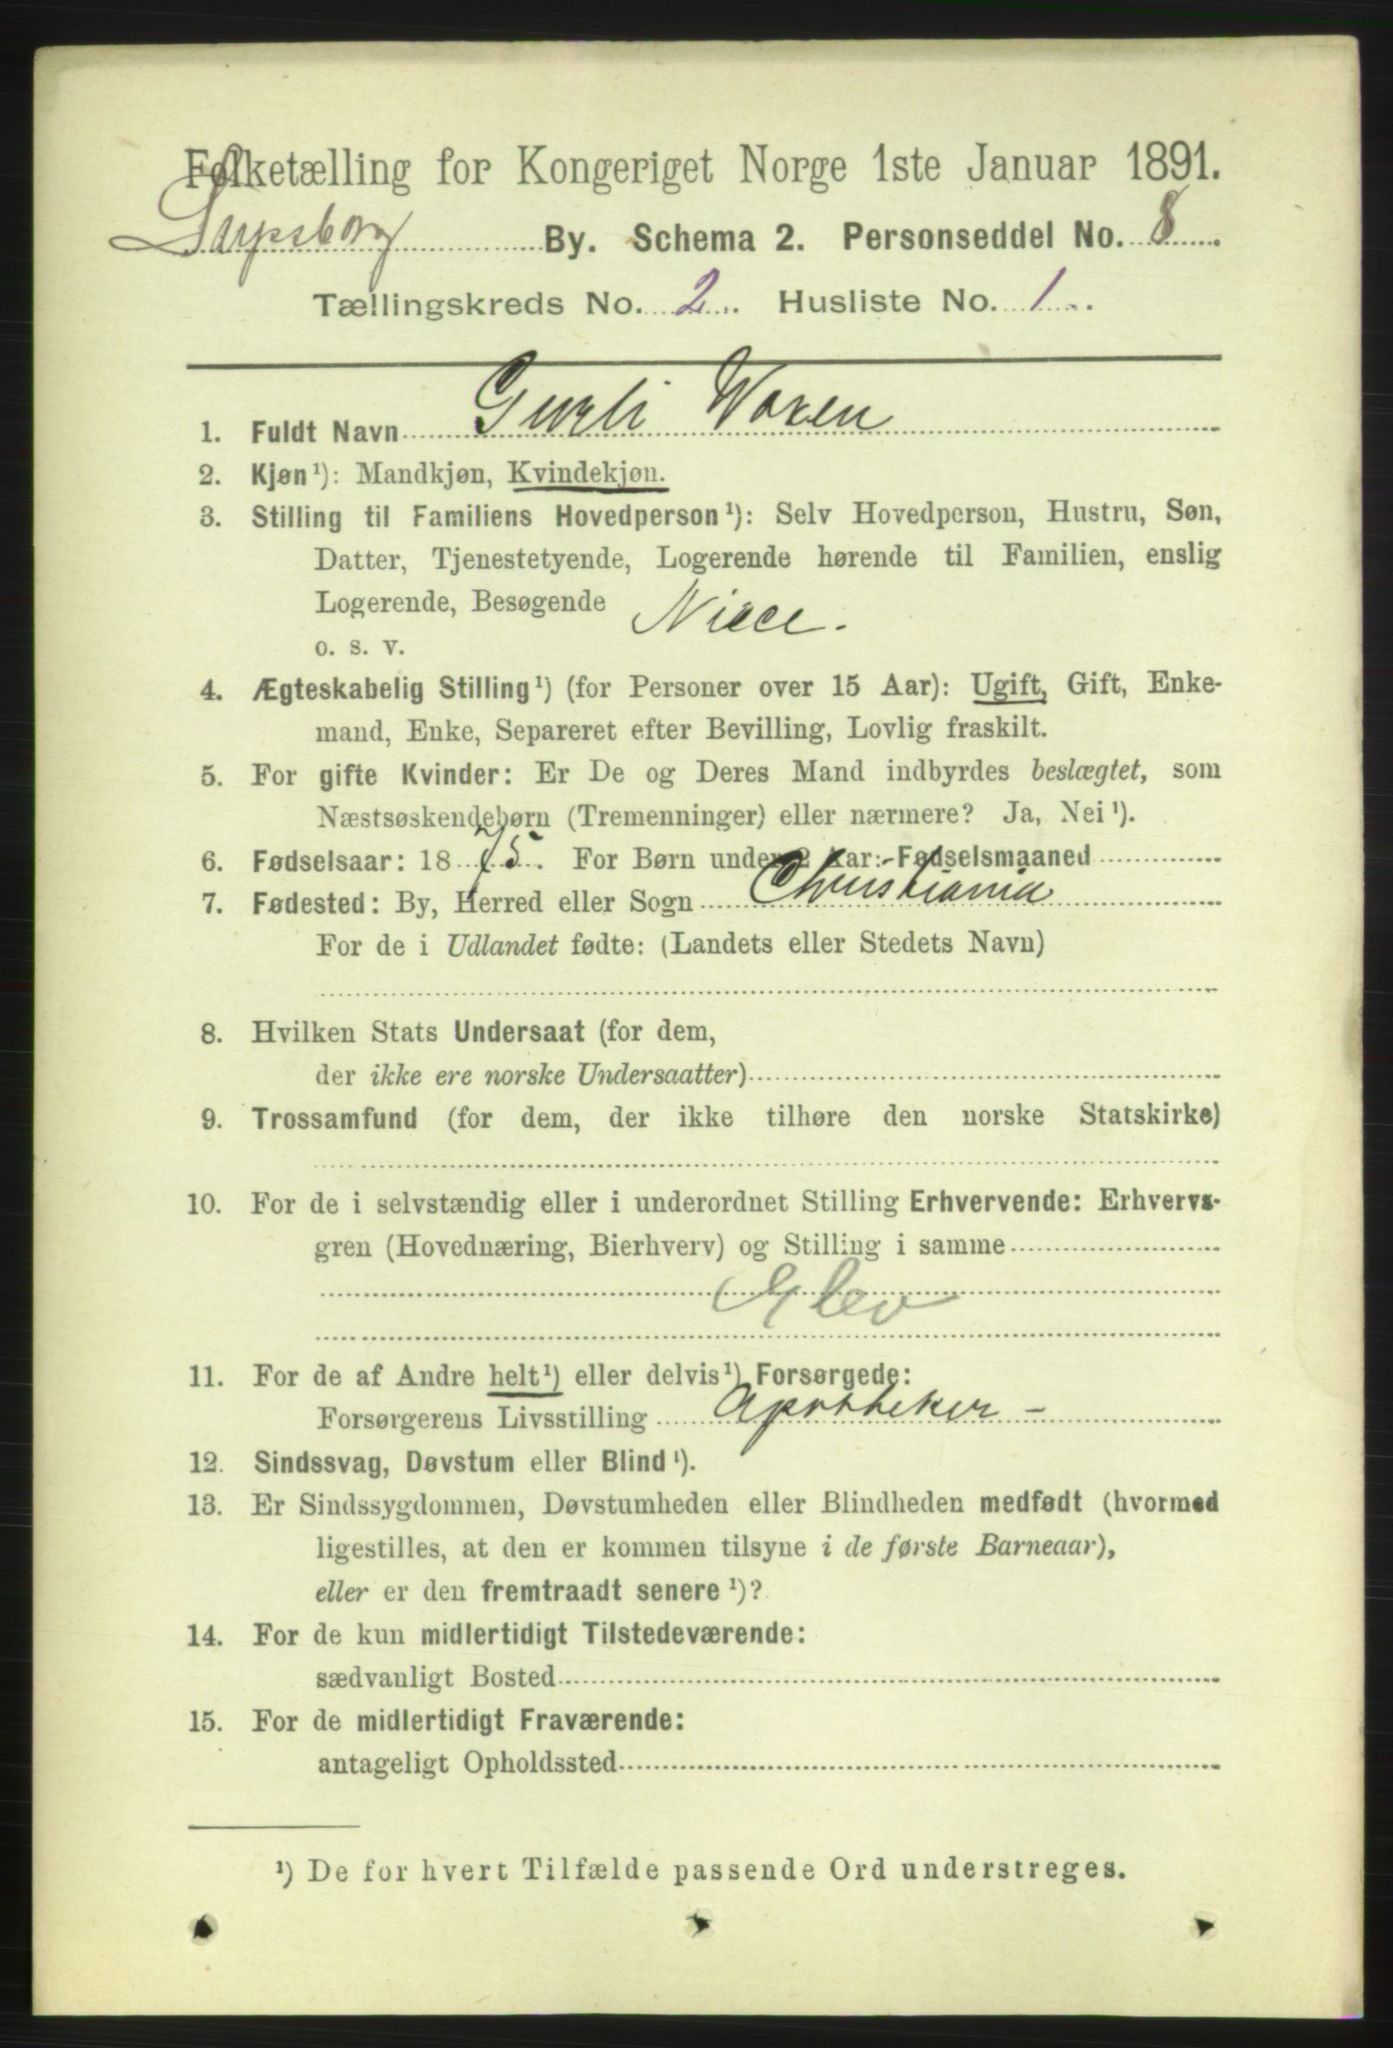 Folketælling for Kongeriget Norge 1ste Januar 1891.
Sarpsborg By. Schema 2. Personseddel No. 8
Tællingskreds No. 2. Husliste No. 1.
1. Fuldt Navn Gurli Waren
2. Kjøn¹): Mandkjøn, Kvindekjøn.
3. Stilling til Familiens Hovedperson¹): Selv Hovedperson, Hustru, Søn,
Datter, Tjenestetyende, Logerende hørende til Familien, enslig
Logerende, Besøgende Niece.
o. s. v.
4. Ægteskabelig Stilling¹) (for Personer over 15 Aar): Ugift, Gift, Enke-
mand, Enke, Separeret efter Bevilling, Lovlig fraskilt.
5. For gifte Kvinder: Er De og Deres Mand indbyrdes beslægtet, som
Næstsøskendebørn (Tremenninger) eller nærmere? Ja, Nei¹).
6. Fødselsaar: 1875. For Børn under 2 Aar: Fødselsmaaned
7. Fødested: By, Herred eller Sogn Christiania
For de i Udlandet fødte: (Landets eller Stedets Navn)
8. Hvilken Stats Undersaat (for dem,
der ikke ere norske Undersaatter)
9. Trossamfund (for dem, der ikke tilhøre den norske Statskirke)
10. For de i selvstændig eller i underordnet Stilling Erhvervende: Erhvervs-
gren (Hovednæring, Bierhverv) og Stilling i samme
Elev
11. For de af Andre helt¹) eller delvis¹) Forsørgede:
Forsørgerens Livsstilling Apotheker -
12. Sindssvag, Døvstum eller Blind¹).
13. Er Sindssygdommen, Døvstumheden eller Blindheden medfødt (hvormed
ligestilles, at den er kommen tilsyne i de første Barneaar),
eller er den fremtraadt senere¹)?
14. For de kun midlertidigt Tilstedeværende:
sædvanligt Bosted
15. For de midlertidigt Fraværende:
antageligt Opholdssted
¹) De for hvert Tilfælde passende Ord understreges.